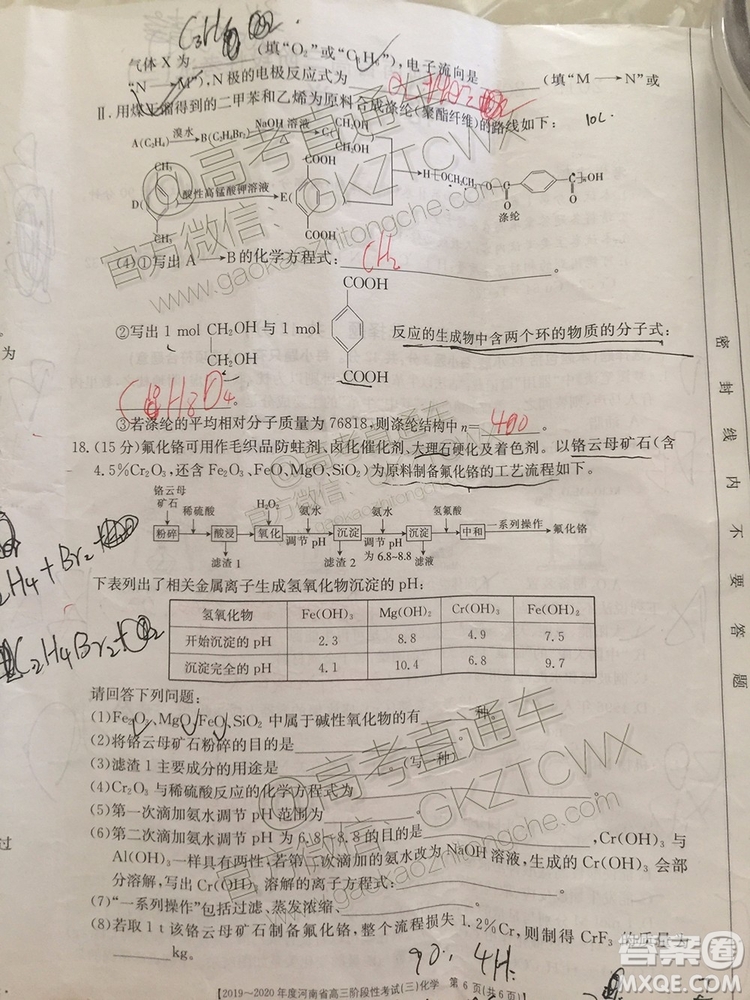 C3H8
气体 X 为____(填“O2”或“C3H8”),电子流向是____(填“M→N”或
“N→M”),N 极的电极反应式为____
Ⅱ.用煤干馏得到的二甲苯和乙烯为原料合成涤纶(聚酯纤维)的路线如下:
10L
A(C2H4) 溴水 B(C2H4Br2) NaOH 溶液 C(
CH2OH
CH2OH
COOH
CH3
D( 酸性高锰酸钾溶液 E(
CH3
COOH
H OCH2CH2 O C C OH
O O
涤纶
(4)①写出 A→B的化学方程式:____
CH2
COOH
②写出 1 mol CH2OH 与 1 mol 反应的生成物中含两个环的物质的分子式:
CH2OH
COOH
③若涤纶的平均相对分子质量为 76818,则涤纶结构中 n=400
18.(15 分)氟化铬可用作毛织品防蛀剂、卤化催化剂、大理石硬化及着色剂。以铬云母矿石(含
4.5%Cr2O3,还含 Fe2O3、FeO、MgO、SiO2)为原料制备氟化铬的工艺流程如下。
铬云母矿石 稀硫酸 H2O2 氨水 氨水 氢氟酸
粉碎 酸浸 氧化 调节 pH 沉淀 调节 pH 为 6.8-8.8 沉淀 中和 一系列操作 氟化铬
滤渣 1 滤渣 2 滤液
下表列出了相关金属离子生成氢氧化物沉淀的 pH:
氢氧化物 Fe(OH)3 Mg(OH)2 Cr(OH)3 Fe(OH)2
开始沉淀的 pH 2.3 8.8 4.9 7.5
沉淀完全的 pH 4.1 10.4 6.8 9.7
请回答下列问题:
(1)Fe2O3、MgO、FeO、SiO2 中属于碱性氧化物的有____种。
(2)将铬云母矿石粉碎的目的是____。
(3)滤渣 1 主要成分的用途是____(写一种)。
(4)Cr2O3 与稀硫酸反应的化学方程式为____。
(5)第一次滴加氨水调节 pH 范围为____。
(6)第二次滴加氨水调节 pH 为 6.8~8.8 的目的是____,Cr(OH)3 与
Al(OH)3 一样具有两性,若第二次滴加的氨水改为 NaOH 溶液,生成的 Cr(OH)3 会部
分溶解,写出 Cr(OH)3 溶解的离子方程式:____。
(7)“一系列操作”包括过滤、蒸发浓缩、____。
(8)若取 1 t 该铬云母矿石制备氟化铬,整个流程损失 1.2%Cr,则制得 CrF3 的质量为
____kg。
【2019~2020 年度河南省高三阶段性考试(三)化学 第 6 页(共 6 页)】
密封线内不要答题
为
过
@高考直通车
官方微信:GKZTCWX
www.gaokaozhitongche.com
@高考直通车
官方微信:GKZTCWX
www.gaokaozhitongche.com
答案圈
MXQE.COM